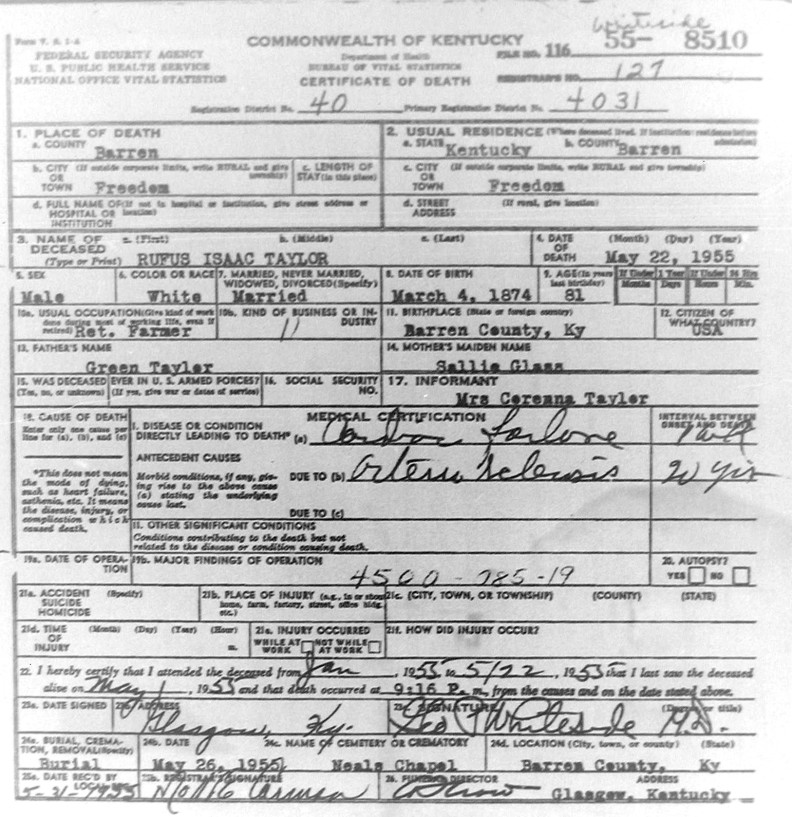 Whiteside
COMMONWEALTH OF KENTUCKY
FILE NO. 116 55- 8510
Form V. S. 1-A
FEDERAL SECURITY AGENCY
U. S. PUBLIC HEALTH SERVICE
NATIONAL OFFICE VITAL STATISTICS
Department of Health
BUREAU OF VITAL STATISTICS
CERTIFICATE OF DEATH
REGISTRAR'S NO. 127
Registration District No. 40 Primary Registration District No. 4031
1. PLACE OF DEATH
a. COUNTY Barren
2. USUAL RESIDENCE (Where deceased lived. If institution: residence before admission)
a. STATE Kentucky b. COUNTY Barren
b. CITY (If outside corporate limits, write RURAL and give township) OR TOWN Freedom
c. LENGTH OF STAY (in this place)
c. CITY (If outside corporate limits, write RURAL and give township) OR TOWN Freedom
d. FULL NAME OF (If not in hospital or institution, give street address or location) HOSPITAL OR INSTITUTION
d. STREET ADDRESS (If rural, give location)
3. NAME OF DECEASED (Type or Print) a. (First) b. (Middle) c. (Last)
RUFUS ISAAC TAYLOR
4. DATE OF DEATH (Month) (Day) (Year)
May 22, 1955
5. SEX Male
6. COLOR OR RACE White
7. MARRIED, NEVER MARRIED, WIDOWED, DIVORCED (Specify) Married
8. DATE OF BIRTH March 4, 1874
9. AGE (In years last birthday) 81
If Under 1 Year Months Days If Under 24 Hrs Hours Min.
10a. USUAL OCCUPATION (Give kind of work done during most of working life, even if retired) Ret. Farmer
10b. KIND OF BUSINESS OR INDUSTRY 11
11. BIRTHPLACE (State or foreign country) Barren County, Ky
12. CITIZEN OF WHAT COUNTRY? USA
13. FATHER'S NAME Green Taylor
14. MOTHER'S MAIDEN NAME Sallie Glass
15. WAS DECEASED EVER IN U. S. ARMED FORCES? (Yes, no, or unknown) (If yes, give war or dates of service)
16. SOCIAL SECURITY NO.
17. INFORMANT Mrs Coreana Taylor
18. CAUSE OF DEATH
Enter only one cause per line for (a), (b), and (c)
*This does not mean the mode of dying, such as heart failure, asthenia, etc. It means the disease, injury, or complication which caused death.
MEDICAL CERTIFICATION
I. DISEASE OR CONDITION DIRECTLY LEADING TO DEATH* (a)
INTERVAL BETWEEN ONSET AND DEATH
ANTECEDENT CAUSES
Morbid conditions, if any, giving rise to the above cause (a) stating the underlying cause last.
DUE TO (b) Arterio Sclerosis 20 yrs
DUE TO (c)
II. OTHER SIGNIFICANT CONDITIONS
Conditions contributing to the death but not related to the disease or condition causing death.
19a. DATE OF OPERATION
19b. MAJOR FINDINGS OF OPERATION
4500 - 085 - 19
20. AUTOPSY? YES NO
21a. ACCIDENT SUICIDE HOMICIDE (Specify)
21b. PLACE OF INJURY (e.g., in or about home, farm, factory, street, office bldg. etc.)
21c. (CITY, TOWN, OR TOWNSHIP) (COUNTY) (STATE)
21d. TIME OF INJURY (Month) (Day) (Year) (Hour) m.
21e. INJURY OCCURRED WHILE AT WORK NOT WHILE AT WORK
21f. HOW DID INJURY OCCUR?
22. I hereby certify that I attended the deceased from Jan, 1955 to 5/22, 1955 that I last saw the deceased
alive on May 1, 1955 and that death occurred at 9:16 P. m, from the causes and on the date stated above.
23a. DATE SIGNED
23b. ADDRESS Glasgow, Ky.
23c. SIGNATURE (Degree or title) Leo J Whiteside M.D.
24a. BURIAL, CREMATION, REMOVAL (Specify) Burial
24b. DATE May 26, 1955
24c. NAME OF CEMETERY OR CREMATORY Neals Chapel
24d. LOCATION (City, town, or county) (State) Barren County, Ky
25a. DATE REC'D BY LOCAL REG. 5-21-1955
25b. REGISTRAR'S SIGNATURE
26. FUNERAL DIRECTOR
ADDRESS Glasgow, Kentucky